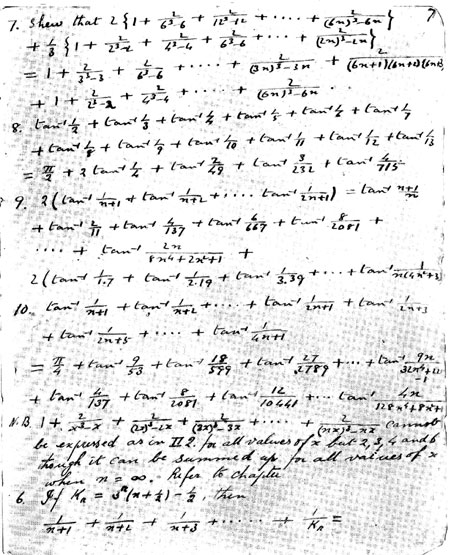 7. Shew that 2{1 + 2/(6³-6) + 2/(12³-12) + ····· + 2/((6n)³-6n)} 7
+ 1/3 {1 + 2/(2³-2) + 2/(4³-4) + 2/(6³-6) + ···· + 2/((2n)³-2n)}
= 1 + 2/(3³-3) + 2/(6³-6) + ····· + 2/((3n)³-3n) + 2/((6n+1)(6n+2)(6n+3))
+ 1 + 2/(2³-2) + 2/(4³-4) + ····· + 2/((6n)³-6n) ··
8. tan⁻¹ 1/2 + tan⁻¹ 1/3 + tan⁻¹ 1/4 + tan⁻¹ 1/5 + tan⁻¹ 1/6 + tan⁻¹ 1/7
+ tan⁻¹ 1/8 + tan⁻¹ 1/9 + tan⁻¹ 1/10 + tan⁻¹ 1/11 + tan⁻¹ 1/12 + tan⁻¹ 1/13
= π/2 + 2 tan⁻¹ 1/4 + tan⁻¹ 2/49 + tan⁻¹ 3/232 + tan⁻¹ 4/715
9. 2(tan⁻¹ 1/(n+1) + tan⁻¹ 1/(n+2) + ···· tan⁻¹ 1/(2n+1)) = tan⁻¹ (n+1)/n
+ tan⁻¹ 2/11 + tan⁻¹ 4/137 + tan⁻¹ 6/667 + tan⁻¹ 8/2081 +
····· + tan⁻¹ 2n/(8n⁴+2n²+1) +
2(tan⁻¹ 1/1.7 + tan⁻¹ 1/2.19 + tan⁻¹ 1/3.39 + ··· + tan⁻¹ 1/(n(4n²+3))
10. tan⁻¹ 1/(n+1) + tan⁻¹ 1/(n+2) + ····· + tan⁻¹ 1/(2n+1) + tan⁻¹ 1/(2n+3)
+ tan⁻¹ 1/(2n+5) + ····· + tan⁻¹ 1/(4n+1)
= π/4 + tan⁻¹ 9/53 + tan⁻¹ 18/599 + tan⁻¹ 27/2789 + ··· + tan⁻¹ 9n/
+ tan⁻¹ 4/137 + tan⁻¹ 8/2081 + tan⁻¹ 12/10441 + ··· tan⁻¹ 4n/(128n⁴+8n²+1)
N.B. 1 + 2/(x³-x) + 2/((2x)³-2x) + 2/((3x)³-3x) + ····· + 2/((nx)³-nx) cannot
be expressed as in II 2. for all values of x but 2, 3, 4 and 6
though it can be summed up for all values of x
when n = ∞. Refer to chapter
6. If Kₙ = 3ⁿ(n+½) - ½, then
1/(n+1) + 1/(n+2) + 1/(n+3) + ······ + 1/Kₙ =